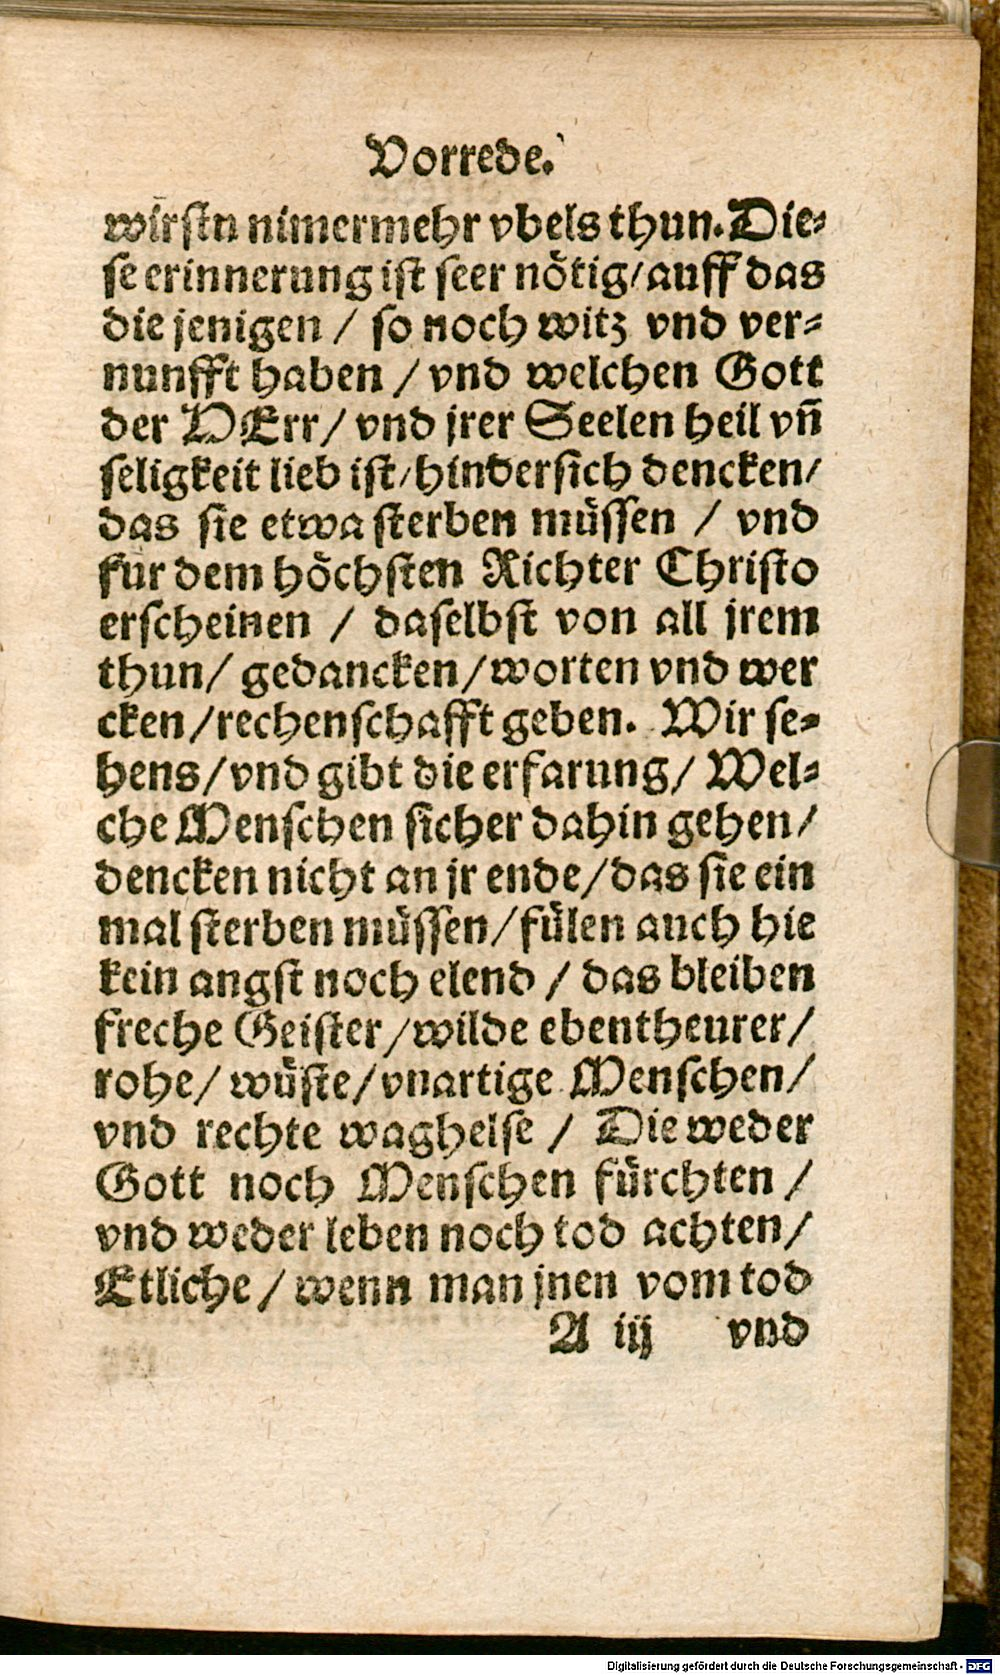 Vorrede.
wirstu nimermehr vbels thun. Die-
se erinnerung ist seer nötig/ auff das
die jenigen / so noch witz vnd ver-
nunfft haben / vnd welchen Gott
der HErr/ vnd jrer Seelen heil vn̄
seligkeit lieb ist/ hindersich dencken/
das sie etwa sterben müssen / vnd
für dem höchsten Richter Christo
erscheinen / daselbst von all jrem
thun/ gedancken/ worten vnd wer
cken/ rechenschafft geben. Wir se-
hens/ vnd gibt die erfarung/ Wel-
che Menschen sicher dahin gehen/
dencken nicht an jr ende/ das sie ein
mal sterben müssen/ fülen auch hie
kein angst noch elend / das bleiben
freche Geister/ wilde ebentheurer/
rohe/ wüste/ vnartige Menschen/
vnd rechte waghelse / Die weder
Gott noch Menschen fürchten /
vnd weder leben noch tod achten/
Etliche / wenn man jnen vom tod
A iij vnd
Digitalisierung gefördert durch die Deutsche Forschungsgemeinschaft - DFG